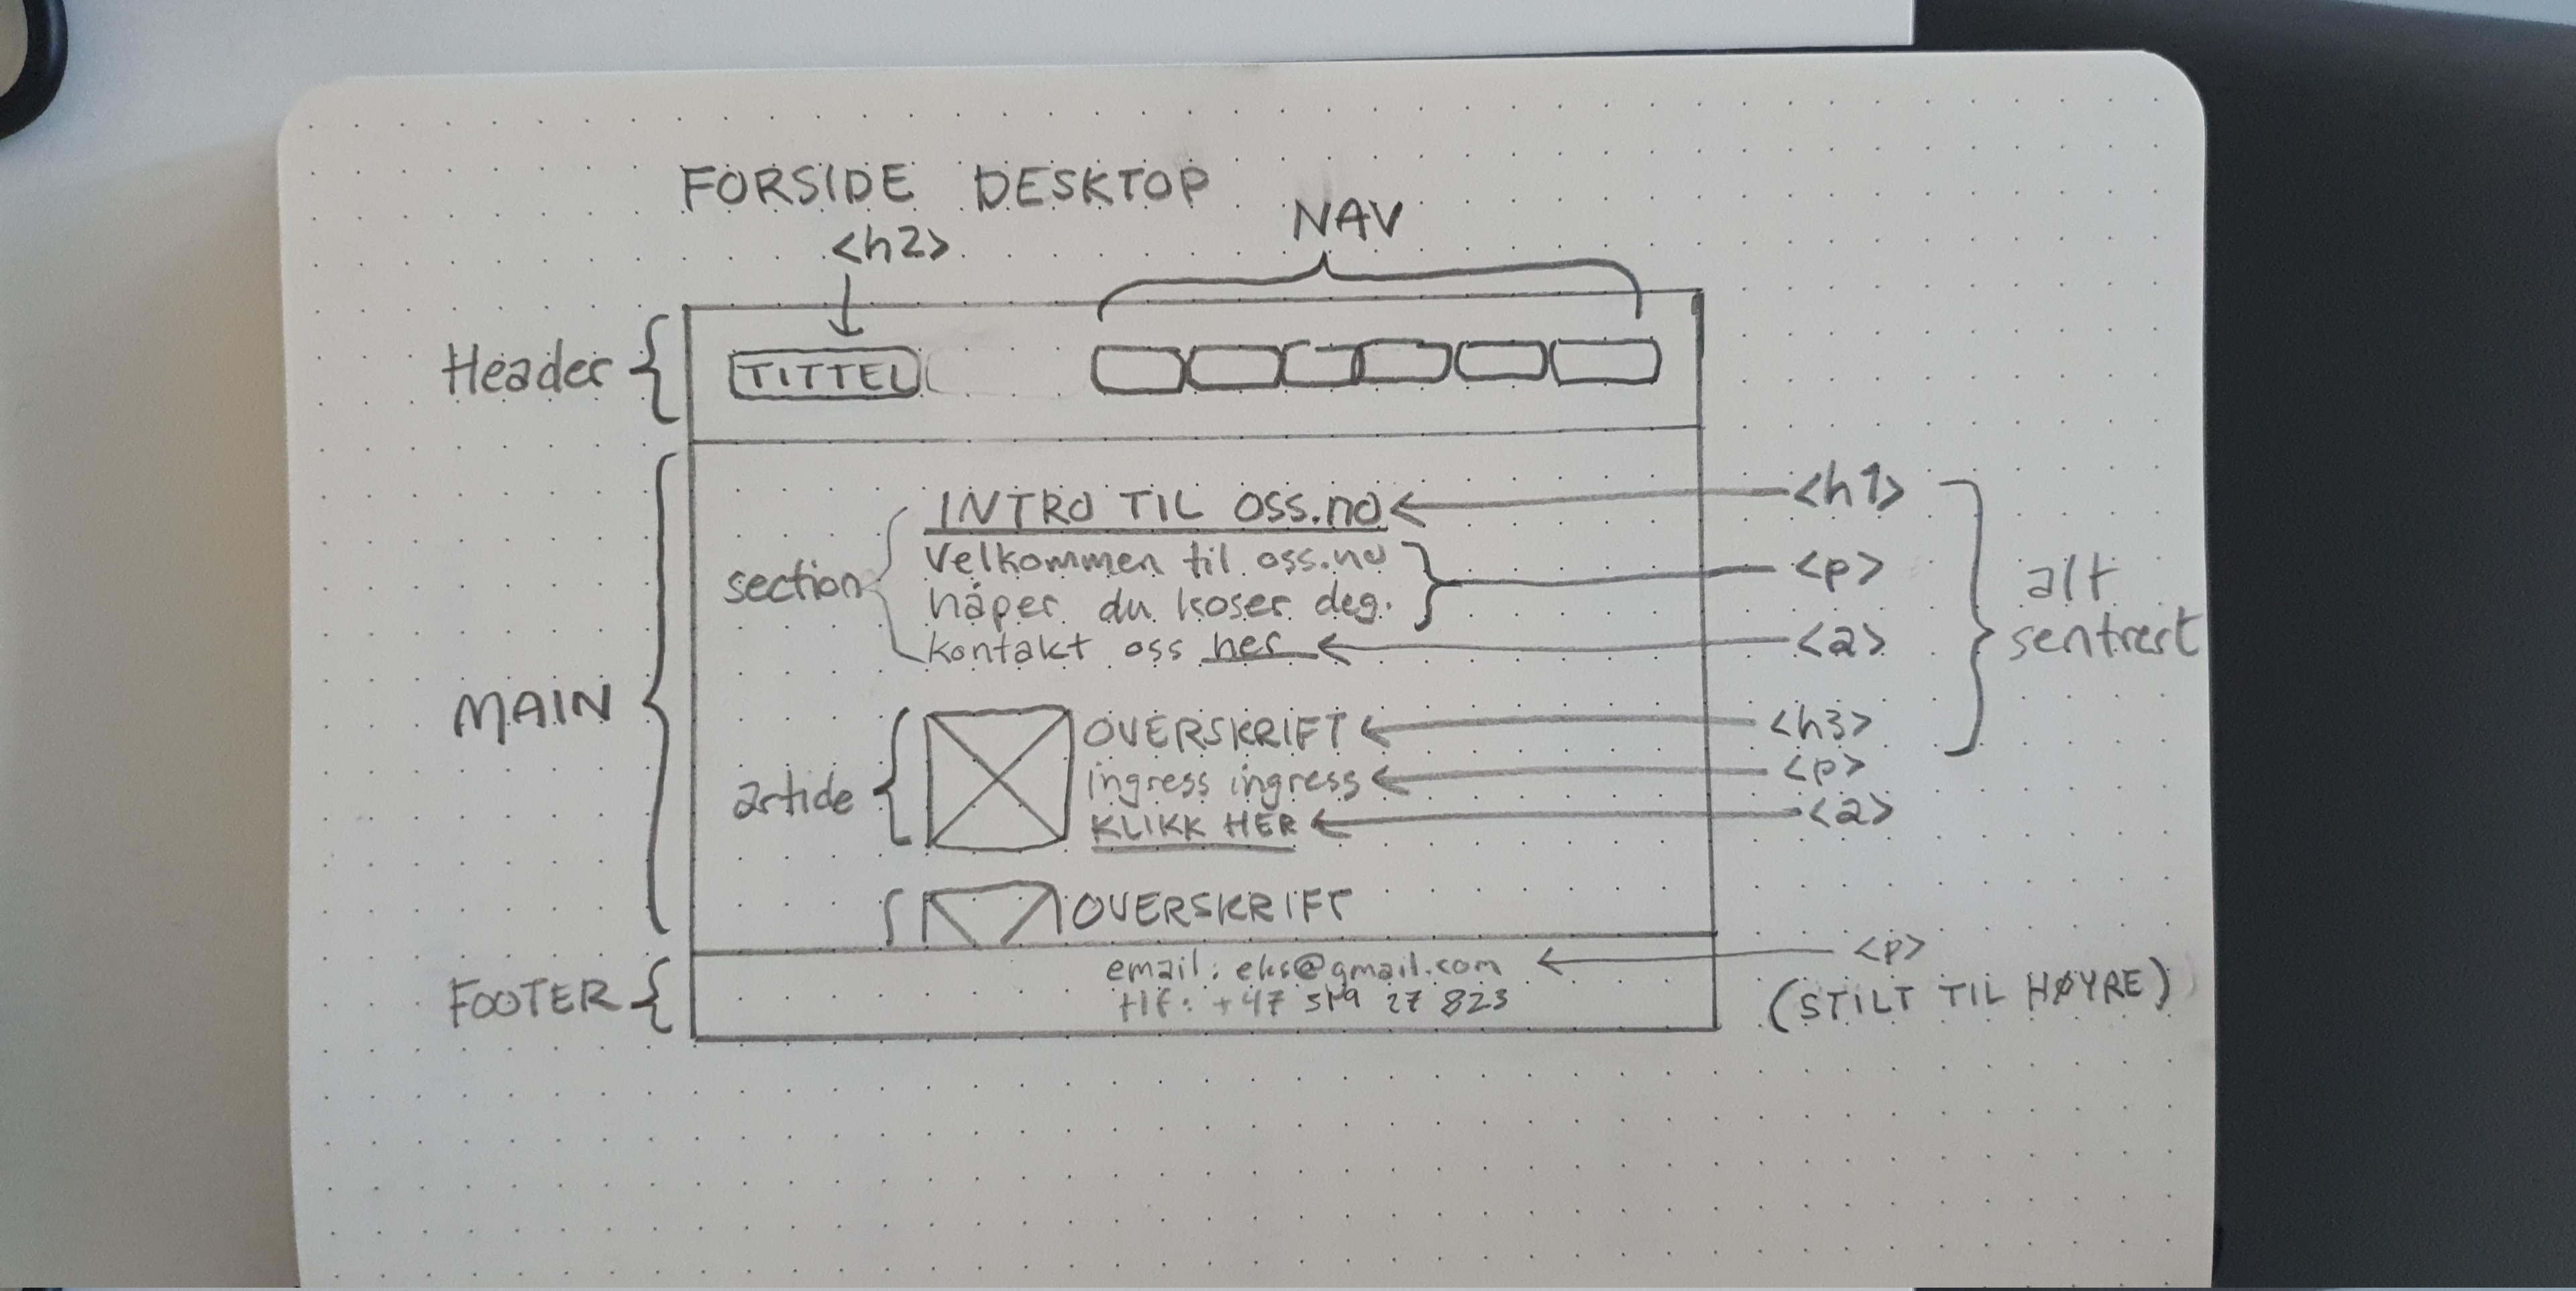 FORSIDE DESKTOP
<h2>
NAV
Header
TITTEL
INTRO TIL OSS.no
<h1>
section
Velkommen til oss.no
håper du koser deg.
<p>
kontakt oss her
<a>
alt
sentrert
MAIN
article
OVERSKRIFT
<h3>
ingress ingress
<p>
KLIKK HER
<a>
OVERSKRIFT
FOOTER
email: eks@gmail.com
<p>
tlf: +47 519 27 823
(STILT TIL HØYRE)